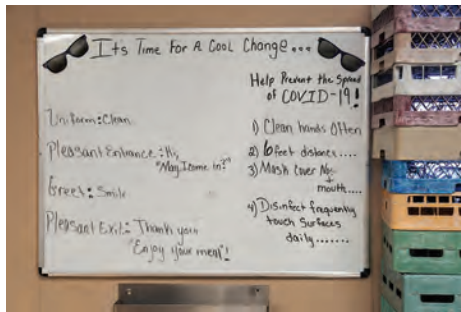 It's Time For A Cool Change...
Uniform: Clean
Pleasant Entrance: Hi,
"May I come in?"
Greet: Smile
Pleasant Exit: Thank you
"Enjoy your meal"!
Help Prevent the Spread
of COVID-19!
1) Clean hands Often
2) 6 feet distance....
3) Mask Cover
+
mouth....
4) Disinfect frequently
touch Surfaces
daily.......